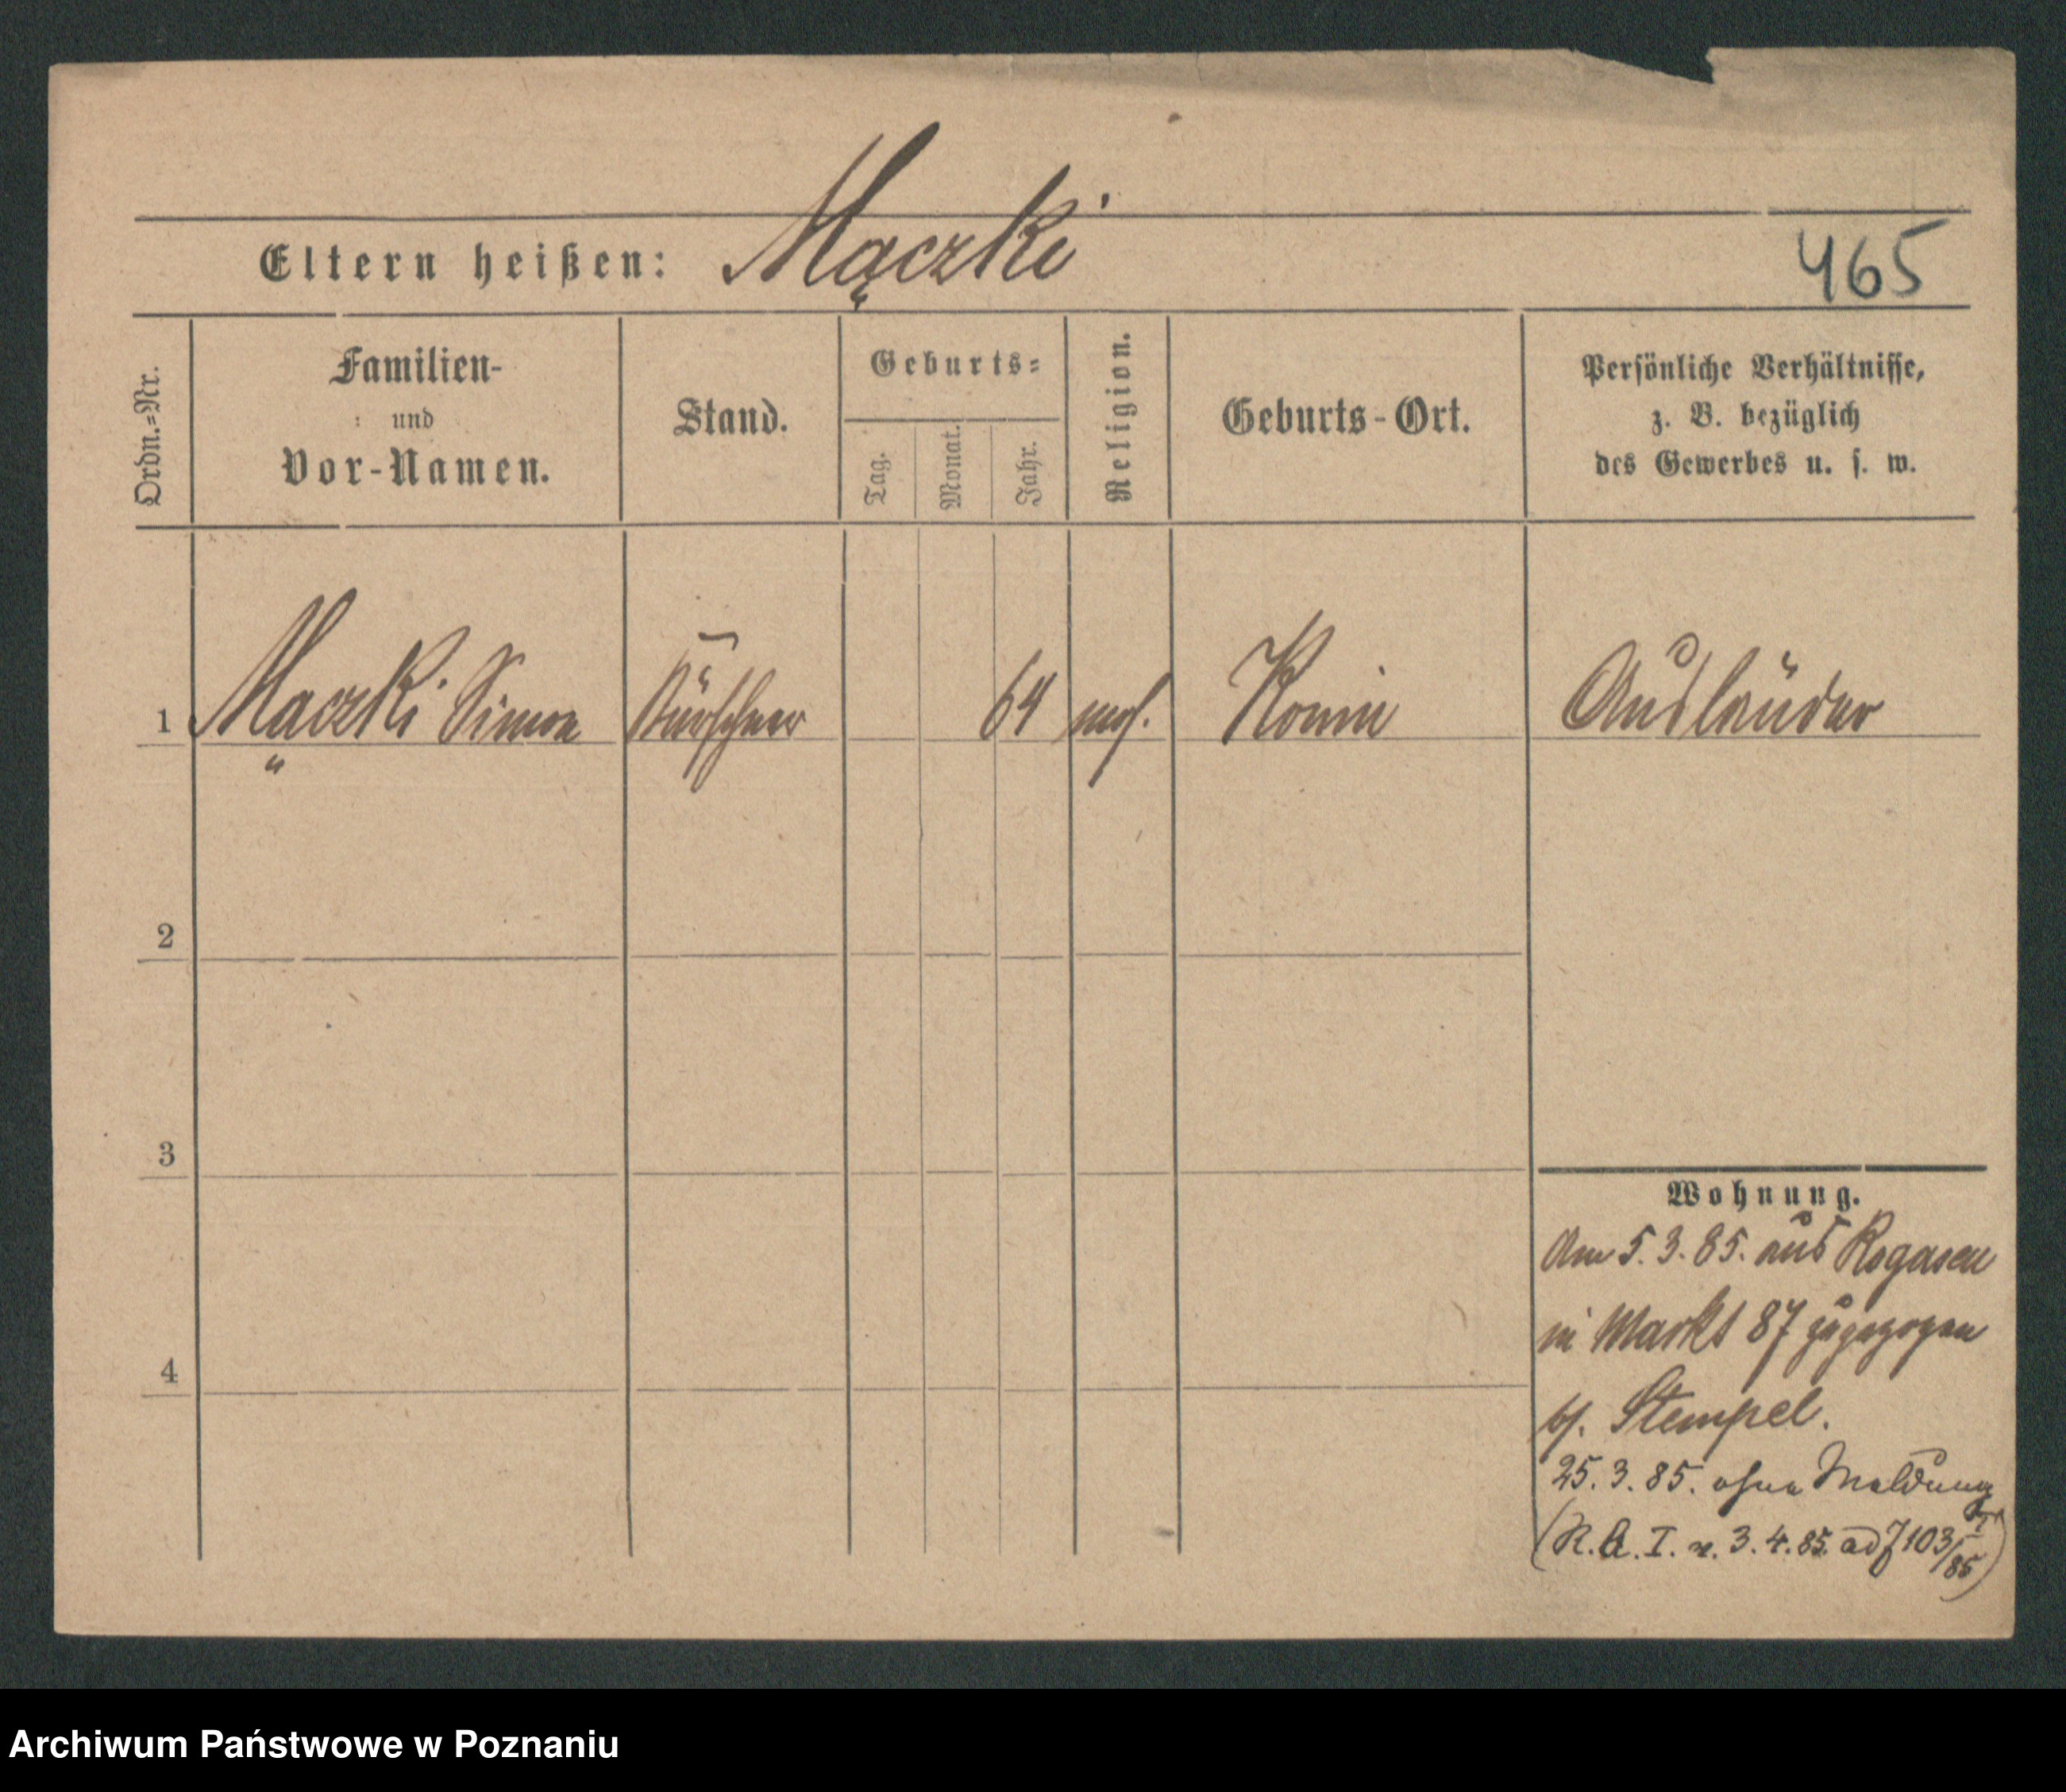 Eltern heißen: Mączki
465
Ordn.=Nr.
Familien-
und
Vor-Namen.
Stand.
Geburts=
Tag.
Monat.
Jahr.
Religion.
Geburts-Ort.
Persönliche Verhältnisse,
z. B. bezüglich
des Gewerbes u. s. w.
1 Mączki Simon Kürschner 64 mos. Konin Ausländer
2
3
4
Wohnung.
Am 5. 3. 85. aus Rogasen
in Markt 87 zugezogen
bj. Stempel.
25. 3. 85. ohne Meldung
(R. A. I. v. 3. 4. 85. ad J 103/85)
Archiwum Państwowe w Poznaniu